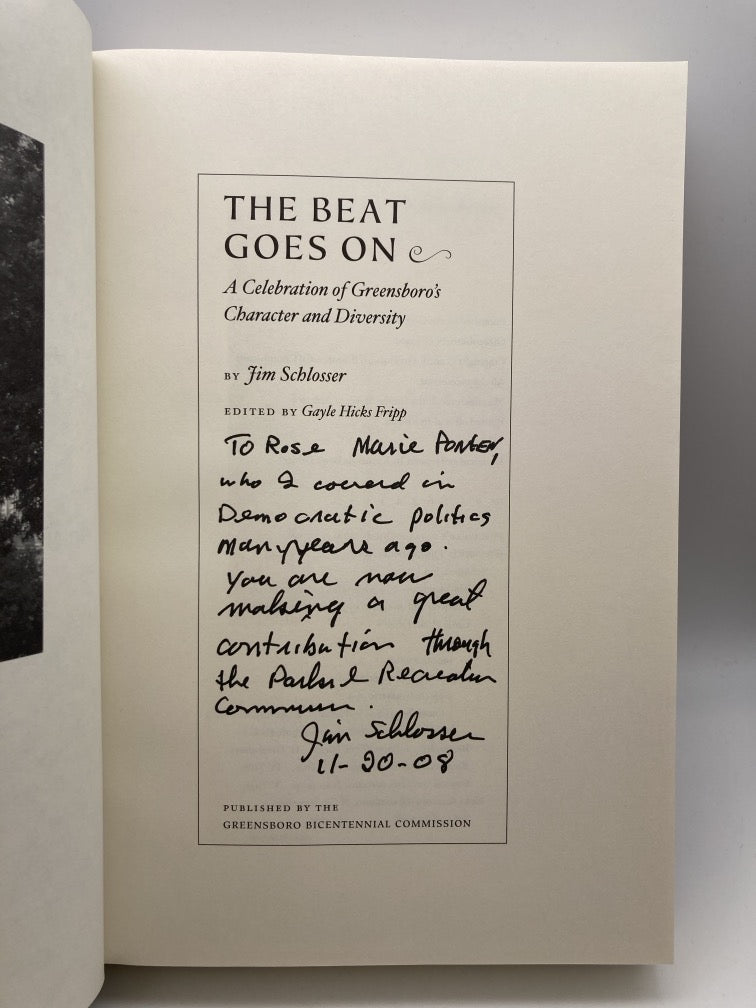 THE BEAT
GOES ON
A Celebration of Greensboro's
Character and Diversity
BY Jim Schlosser
EDITED BY Gayle Hicks Fripp
To Rose Marie Ponder,
who I covered in
Democratic politics
many years ago.
You are now
making a great
contribution through
the Parks & Recreation
Commission.
Jim Schlosser
11-20-08
PUBLISHED BY THE
GREENSBORO BICENTENNIAL COMMISSION